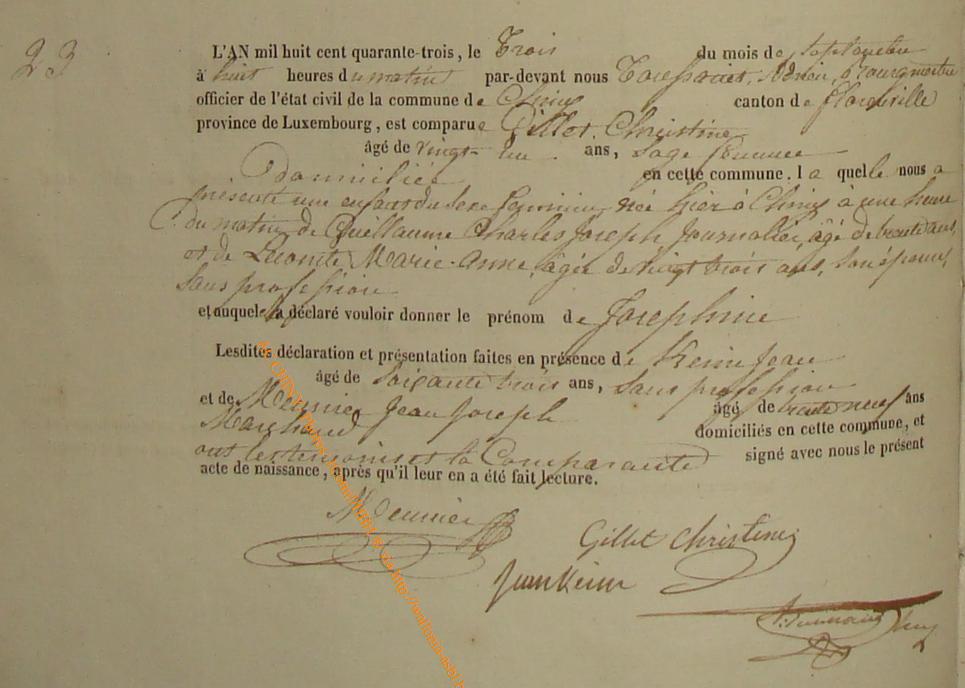 23
L'AN mil huit cent quarante-trois, le Trois du mois de septembre
à huit heures du matin par-devant nous
officier de l'état civil de la commune de Chiny canton de florenville
province de Luxembourg, est comparue Gillet Christine
âgé de vingt ans, Sage femme
Domiciliée en cette commune. la quelle nous a
présenté une enfant du sexe féminin, née hier à Chiny à une heure
du matin, de Guillaume Charles Joseph Journalier, âgé de trente ans,
et de Lecomte Marie-Anne, âgée de vingt trois ans, son épouse,
sans profession
et auquel a déclaré vouloir donner le prénom de Josephine
Lesdites déclaration et présentation faites en présence de Keine Jean
âgé de soixante trois ans, sans profession
et de Meunier Jean Joseph âgé de trente neuf ans
Marchand domiciliés en cette commune, et
ont les temoins et la Comparante signé avec nous le présent
acte de naissance, après qu'il leur en a été fait lecture.
Meunier JJ
Gillet Christine